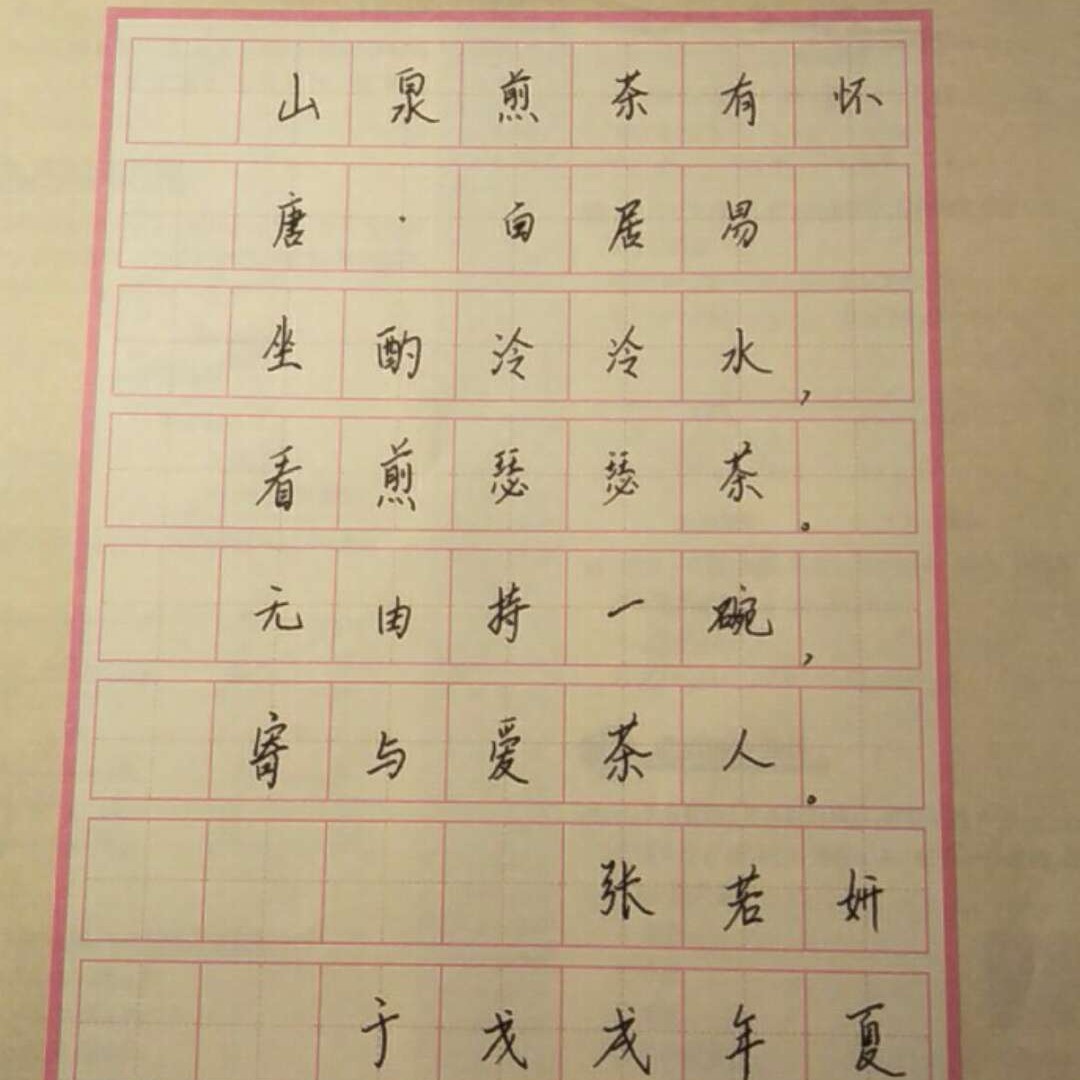 山泉煎茶有怀
唐·白居易
坐酌泠泠水，
看煎瑟瑟茶。
无由持一碗，
寄与爱茶人。
张若妍
于戊戌年夏